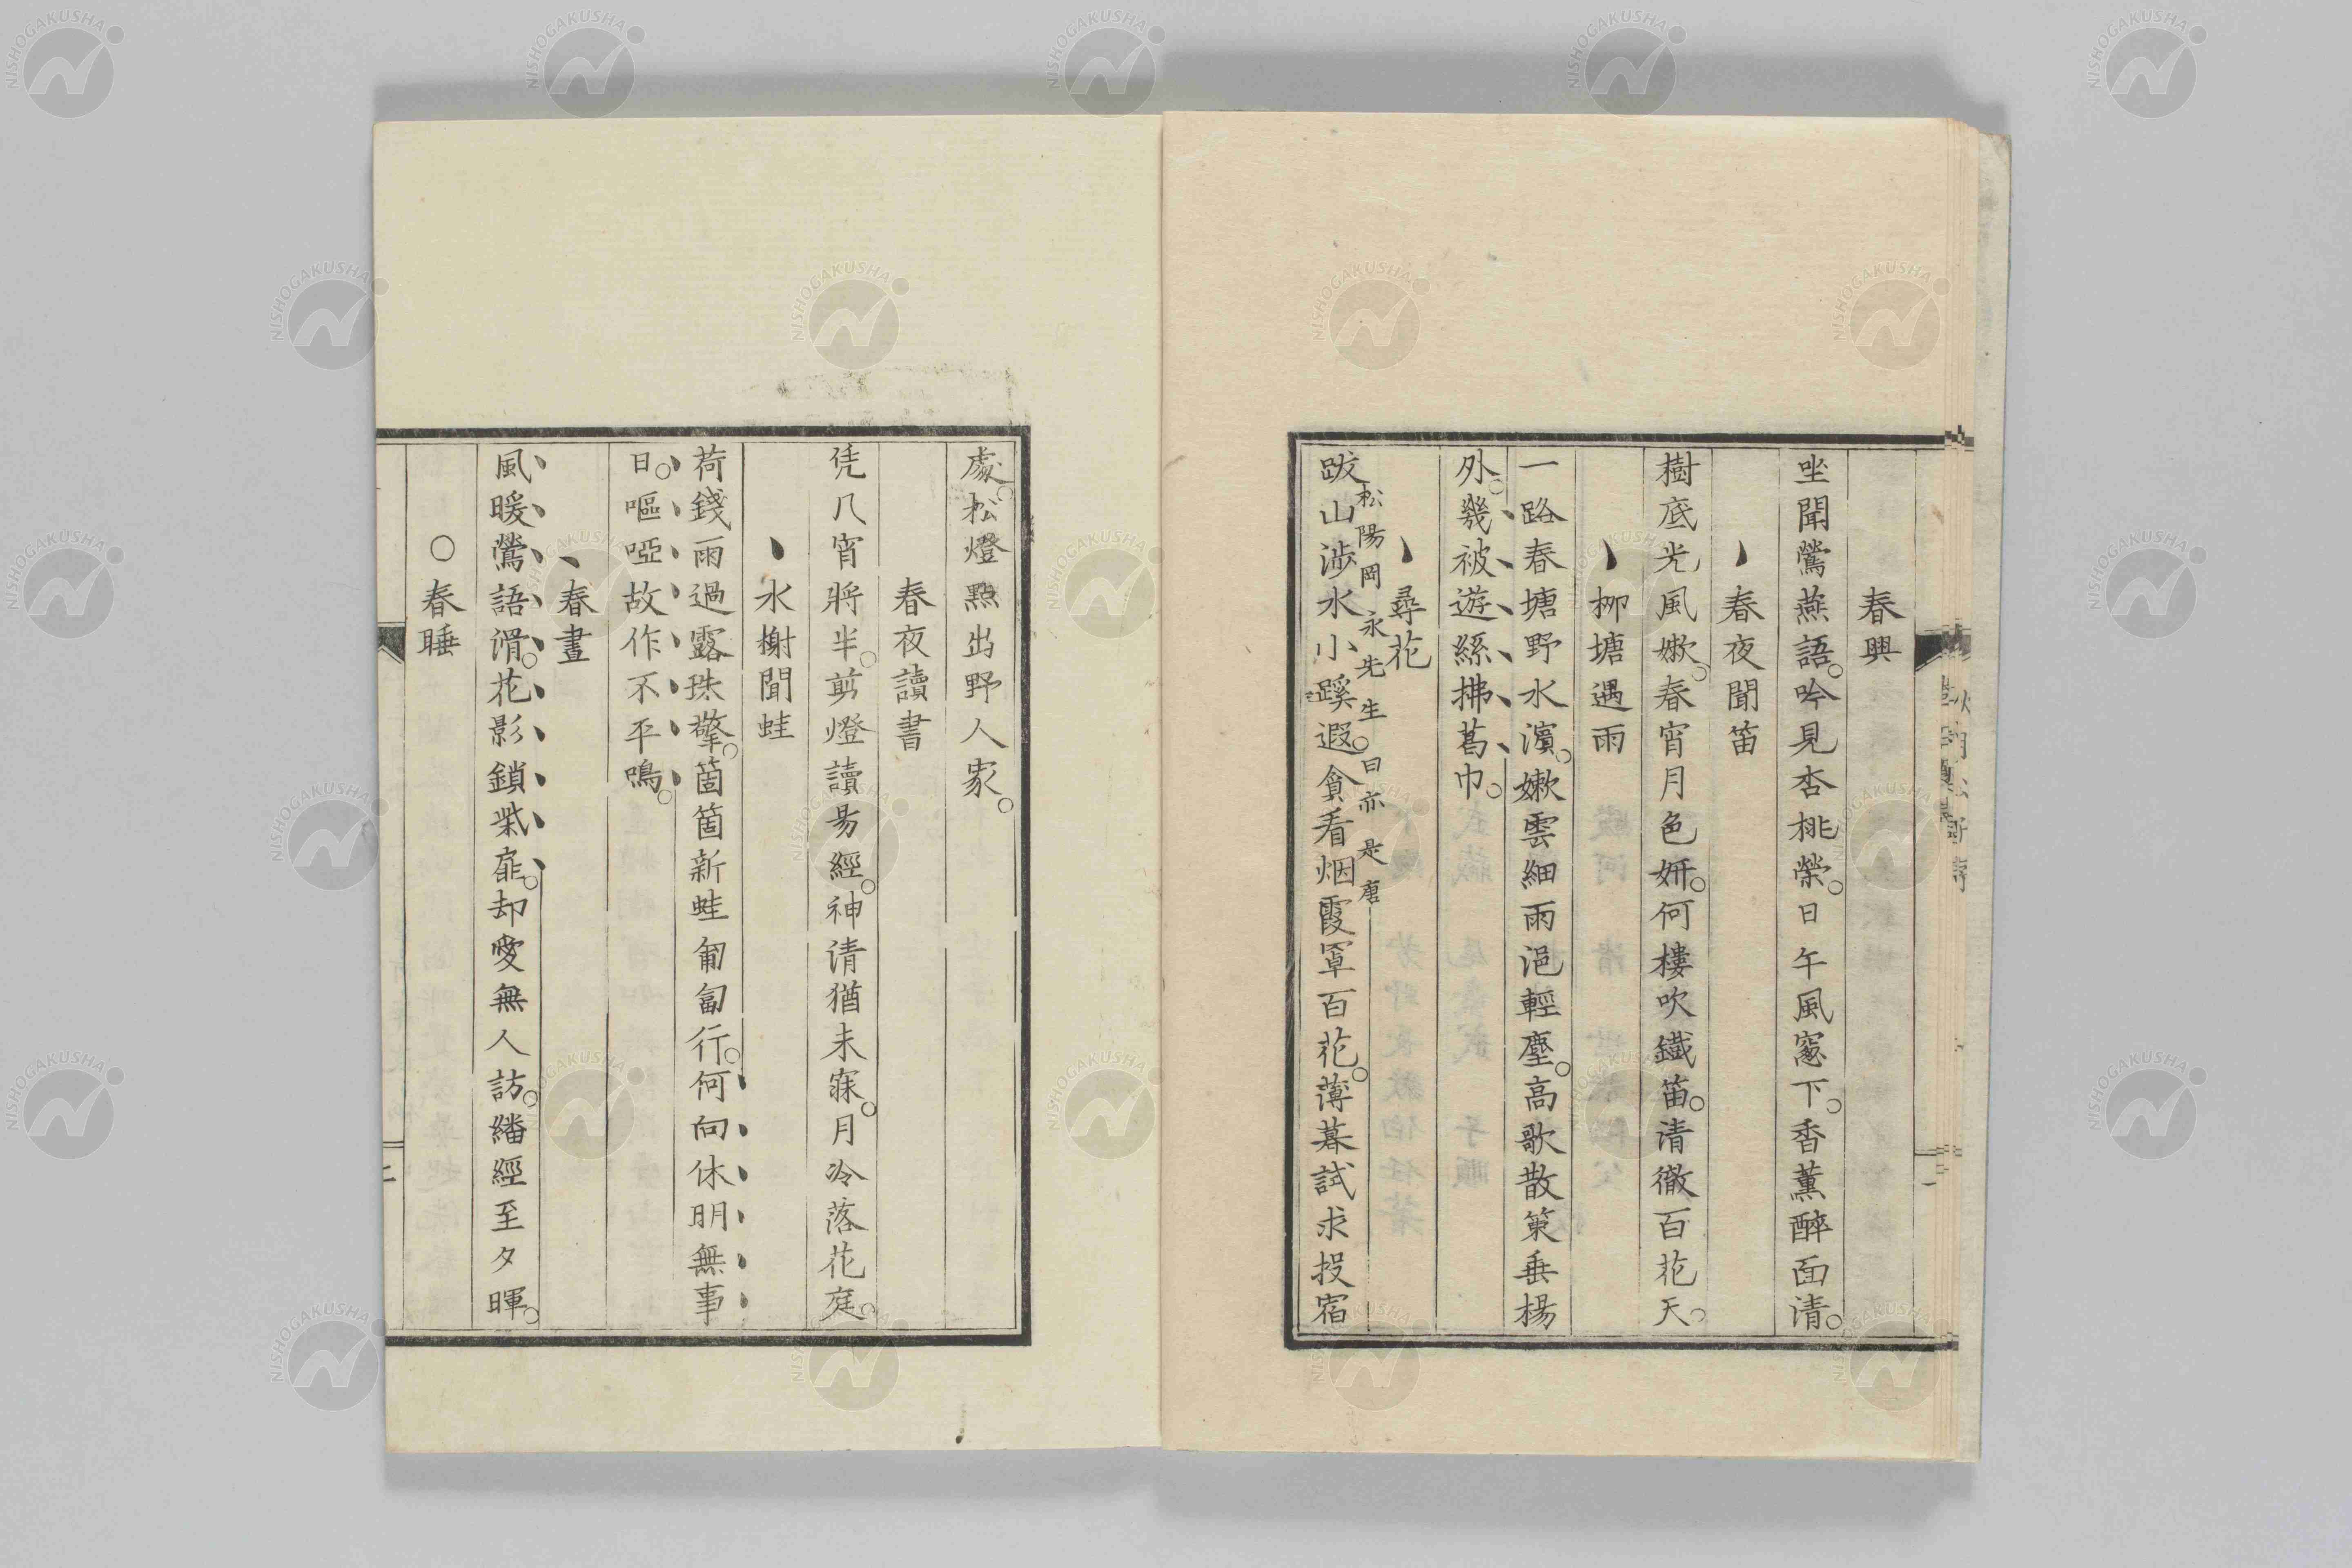 春興
坐聞鶯燕語。吟見杏桃榮。日午風窓下。香薰醉面清。
春夜聞笛
樹底光風嫩。春宵月色妍。何樓吹鐵笛。清徹百花天。
柳塘遇雨
一路春塘野水濱。嫩雲細雨浥輕塵。高歌散策垂楊
外。幾被遊絲拂葛巾。
尋花
松陽岡永先生曰亦是唐
跋山渉水小蹊遐。貪看烟霞罩百花。薄暮試求投宿
處。松燈點出野人家。
春夜讀書
凭几宵將半。剪燈讀易經。神清猶未寐。月冷落花庭。
水榭聞蛙
荷錢雨過露珠擎。箇箇新蛙匍匐行。何向休明無事
日。嘔啞故作不平鳴。
春晝
風暖鶯語滑。花影鎖柴扉。却愛無人訪。繙經至夕暉。
○春睡
NISHOGAKUSHA